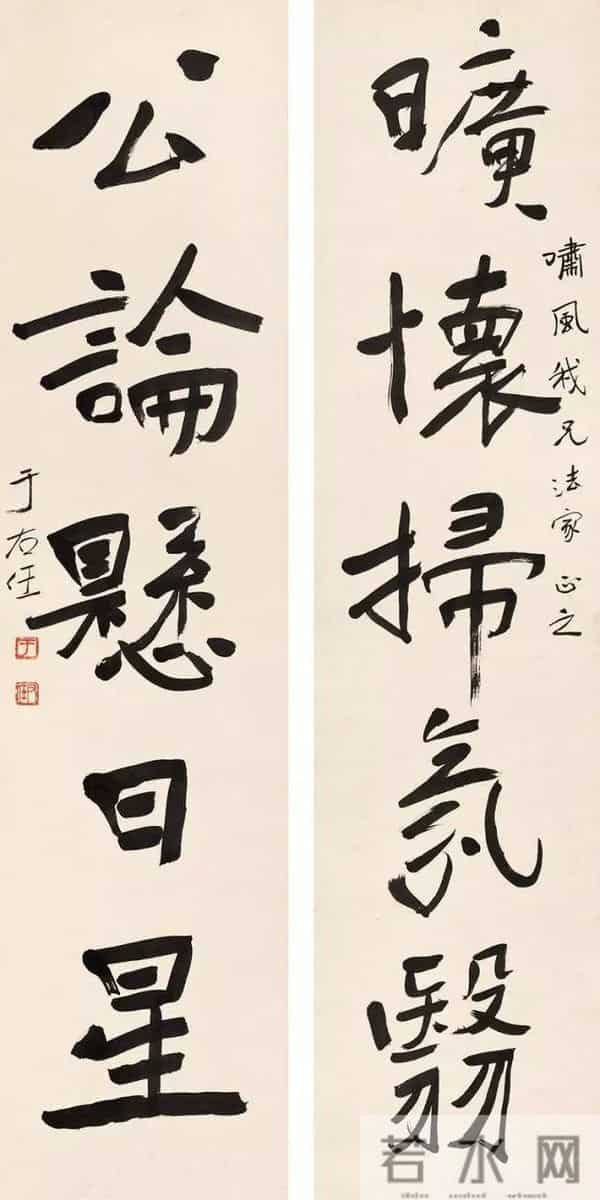 曠懷掃氛翳
嘯風我兄法家正之
公論懸日星
于右任
若水网